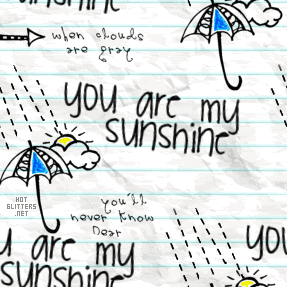 sunshine
when clouds
are gray
you are my
sunshine
HOT
GLITTERS
.NET
you'll
never know
Dear
u are my
sunshine
you